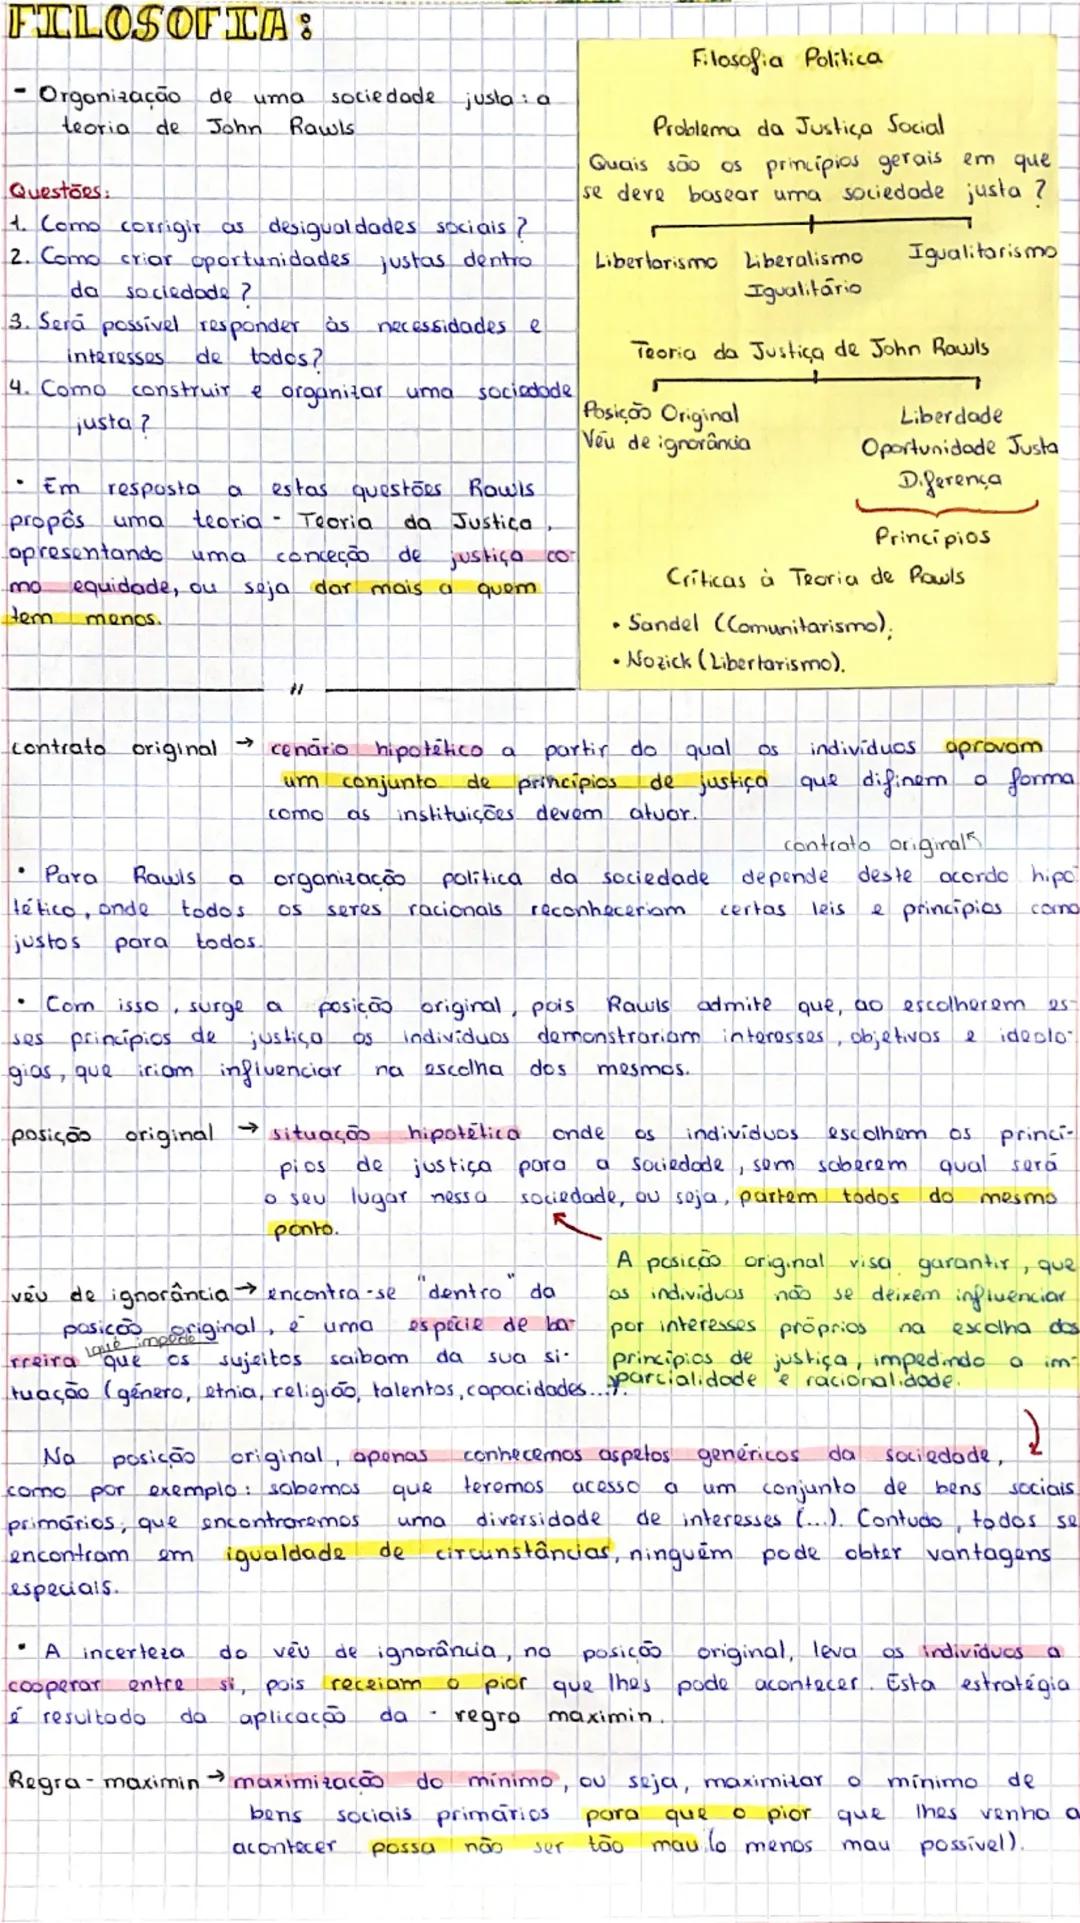 FILOSOFIA:
- Organização de uma sociedade justa: a
teoria de John Rawls
Questões:
1. Como corrigir as desigualdades sociais?
2. Como criar oportunidades justas dentro
da sociedade?
3. Será possível responder às necessidades e
interesses de todos?
4. Como construir e organizar uma sociedade
justa?
• Em resposta a estas questões Rawls
propôs uma teoria - Teoria da Justiça,
apresentando uma conceção de justiça co-
mo equidade, ou seja dar mais a quem
tem menos.
Filosofia Política
Problema da Justiça Social
Quais são os princípios gerais em que
se deve basear uma sociedade justa?
Libertarismo Liberalismo Igualitarismo
Igualitário
Teoria da Justiça de John Rawls
Posição Original Liberdade
Véu de ignorância Oportunidade Justa
Diferença
Princípios
Críticas à Teoria de Rawls
• Sandel (Comunitarismo);
• Nozick (Libertarismo).
contrato original → cenário hipotético a partir do qual os indivíduos aprovam
um conjunto de princípios de justiça que difinem a forma
como as instituições devem atuar.
contrato original
• Para Rawls a organização política da sociedade depende deste acordo hipo-
tético, onde todos os seres racionais reconheceriam certas leis e princípios como
justos para todos.
• Com isso, surge a posição original, pois Rawls admite que, ao escolherem es-
ses princípios de justiça os indivíduos demonstrariam interesses, objetivos e ideolo-
gias, que iriam influenciar na escolha dos mesmos.
posição original → situação hipotética onde os indivíduos escolhem os princí-
pios de justiça para a sociedade, sem saberem qual será
o seu lugar nessa sociedade, ou seja, partem todos do mesmo
ponto.
A posição original visa garantir, que
os indivíduos não se deixem influenciar
por interesses próprios na escolha dos
princípios de justiça, impedindo a im-
parcialidade e racionalidade.
véu de ignorância → encontra-se "dentro" da
posição original, é uma espécie de ba-
rreira que impede que os sujeitos saibam da sua si-
tuação (género, etnia, religião, talentos, capacidades...).
Na posição original, apenas conhecemos aspetos genéricos da sociedade,
como por exemplo: sabemos que teremos acesso a um conjunto de bens sociais
primários, que encontraremos uma diversidade de interesses (...). Contudo, todos se
encontram em igualdade de circunstâncias, ninguém pode obter vantagens
especiais.
• A incerteza do véu de ignorância, na posição original, leva os indivíduos a
cooperar entre si, pois receiam o pior que lhes pode acontecer. Esta estratégia
é resultado da aplicação da - regra maximin.
Regra - maximin → maximização do mínimo, ou seja, maximizar o mínimo de
bens sociais primários para que o pior que lhes venha a
acontecer possa não ser tão mau (o menos mau possível).